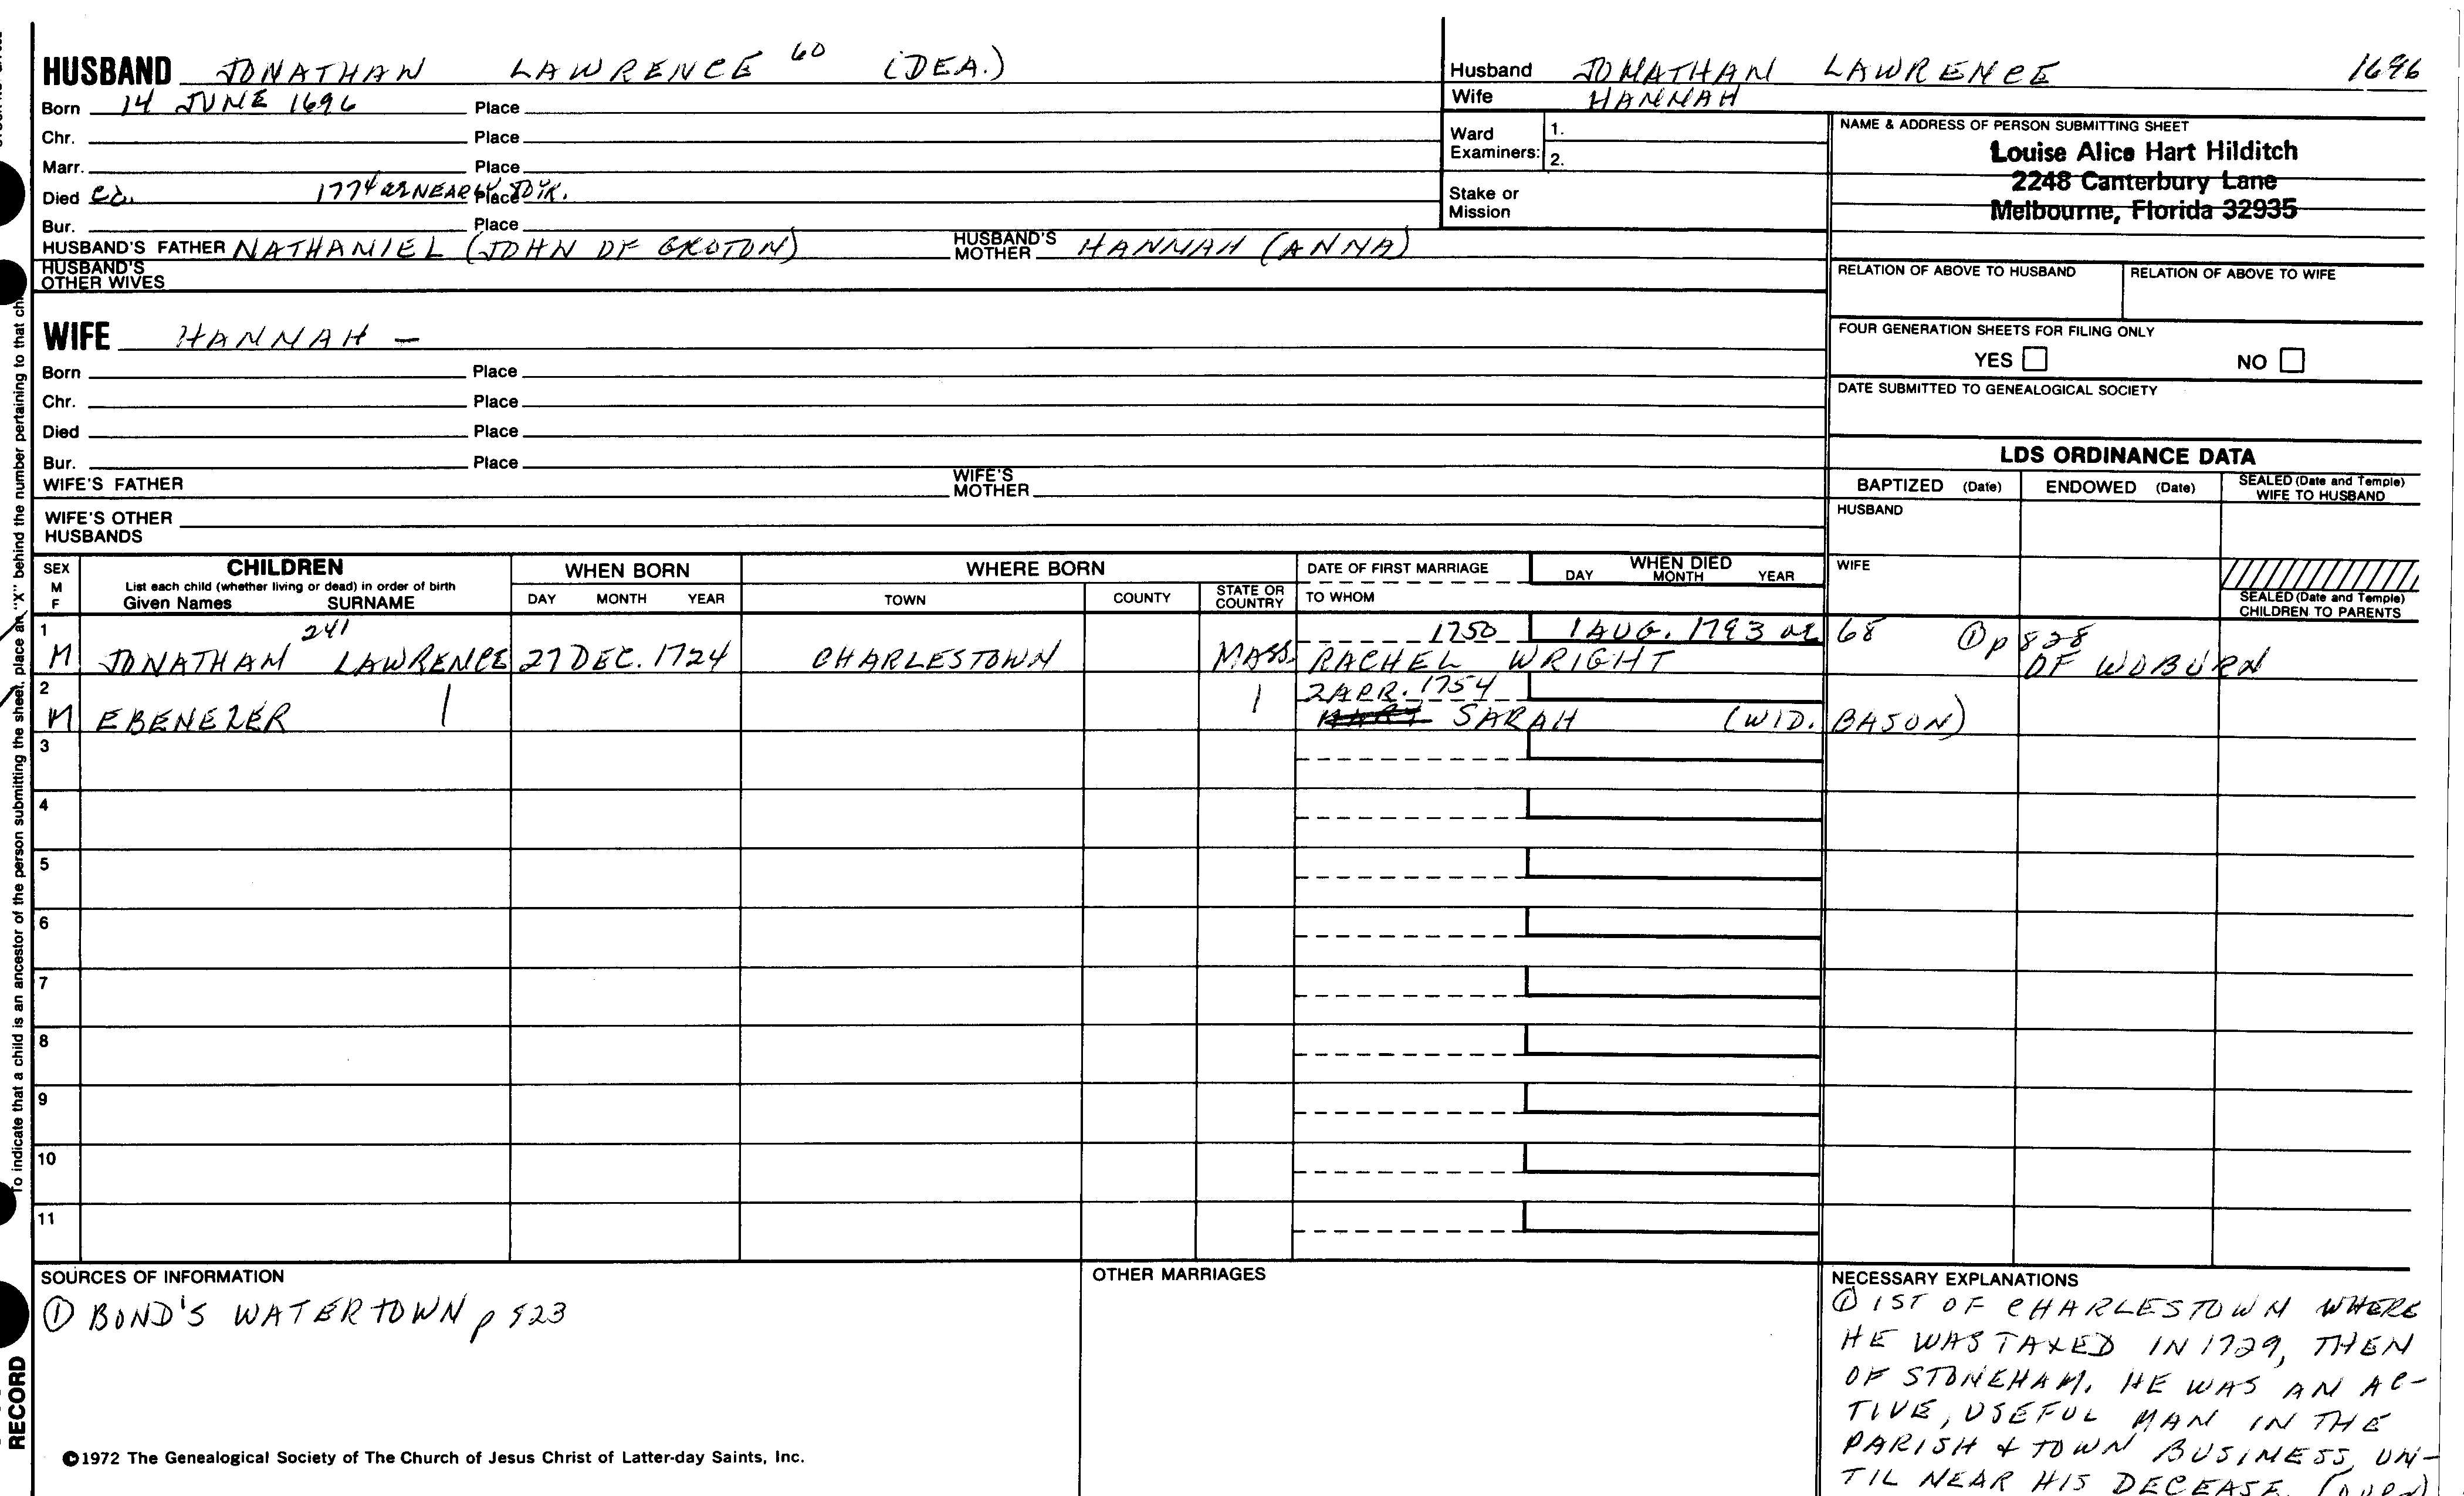 HUSBAND JONATHAN LAWRENCE 60 (DEA.)
Born 14 JUNE 1696 Place
Chr. Place
Marr. Place
Died ca. 1774 æ NEARLY 80 YR. Place
Bur. Place
HUSBAND'S FATHER NATHANIEL (JOHN OF GROTON) HUSBAND'S MOTHER HANNAH (ANNA)
HUSBAND'S OTHER WIVES
WIFE HANNAH –
Born Place
Chr. Place
Died Place
Bur. Place
WIFE'S FATHER WIFE'S MOTHER
WIFE'S OTHER HUSBANDS
Husband JONATHAN LAWRENCE 1696
Wife HANNAH
Ward Examiners: 1.
2.
Stake or Mission
NAME & ADDRESS OF PERSON SUBMITTING SHEET
Louise Alice Hart Hilditch
2248 Canterbury Lane
Melbourne, Florida 32935
RELATION OF ABOVE TO HUSBAND RELATION OF ABOVE TO WIFE
FOUR GENERATION SHEETS FOR FILING ONLY
YES NO
DATE SUBMITTED TO GENEALOGICAL SOCIETY
LDS ORDINANCE DATA
BAPTIZED (Date) ENDOWED (Date) SEALED (Date and Temple) WIFE TO HUSBAND
HUSBAND
WIFE
SEALED (Date and Temple) CHILDREN TO PARENTS
SEX M F CHILDREN WHEN BORN WHERE BORN DATE OF FIRST MARRIAGE WHEN DIED
List each child (whether living or dead) in order of birth
Given Names SURNAME DAY MONTH YEAR TOWN COUNTY STATE OR COUNTRY TO WHOM DAY MONTH YEAR
1 241 1750 1 AUG. 1793 æ 68 ① p 828
M JONATHAN LAWRENCE 27 DEC. 1724 CHARLESTOWN MASS. RACHEL WRIGHT OF WOBURN
2 2 APR. 1754
M EBENEZER SARAH (WID. BASON)
3
4
5
6
7
8
9
10
11
SOURCES OF INFORMATION
① BOND'S WATERTOWN p 823
OTHER MARRIAGES
NECESSARY EXPLANATIONS
① 1ST OF CHARLESTOWN WHERE
HE WAS TAXED IN 1729, THEN
OF STONEHAM. HE WAS AN AC-
TIVE, USEFUL MAN IN THE
PARISH & TOWN BUSINESS, UN-
TIL NEAR HIS DECEASE.
©1972 The Genealogical Society of The Church of Jesus Christ of Latter-day Saints, Inc.
To indicate that a child is an ancestor of the person submitting the sheet, place an "X" behind the number pertaining to that
RECORD